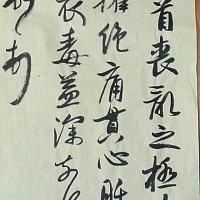 首喪亂之極
摧絕痛貫心肝
哀毒益深奈